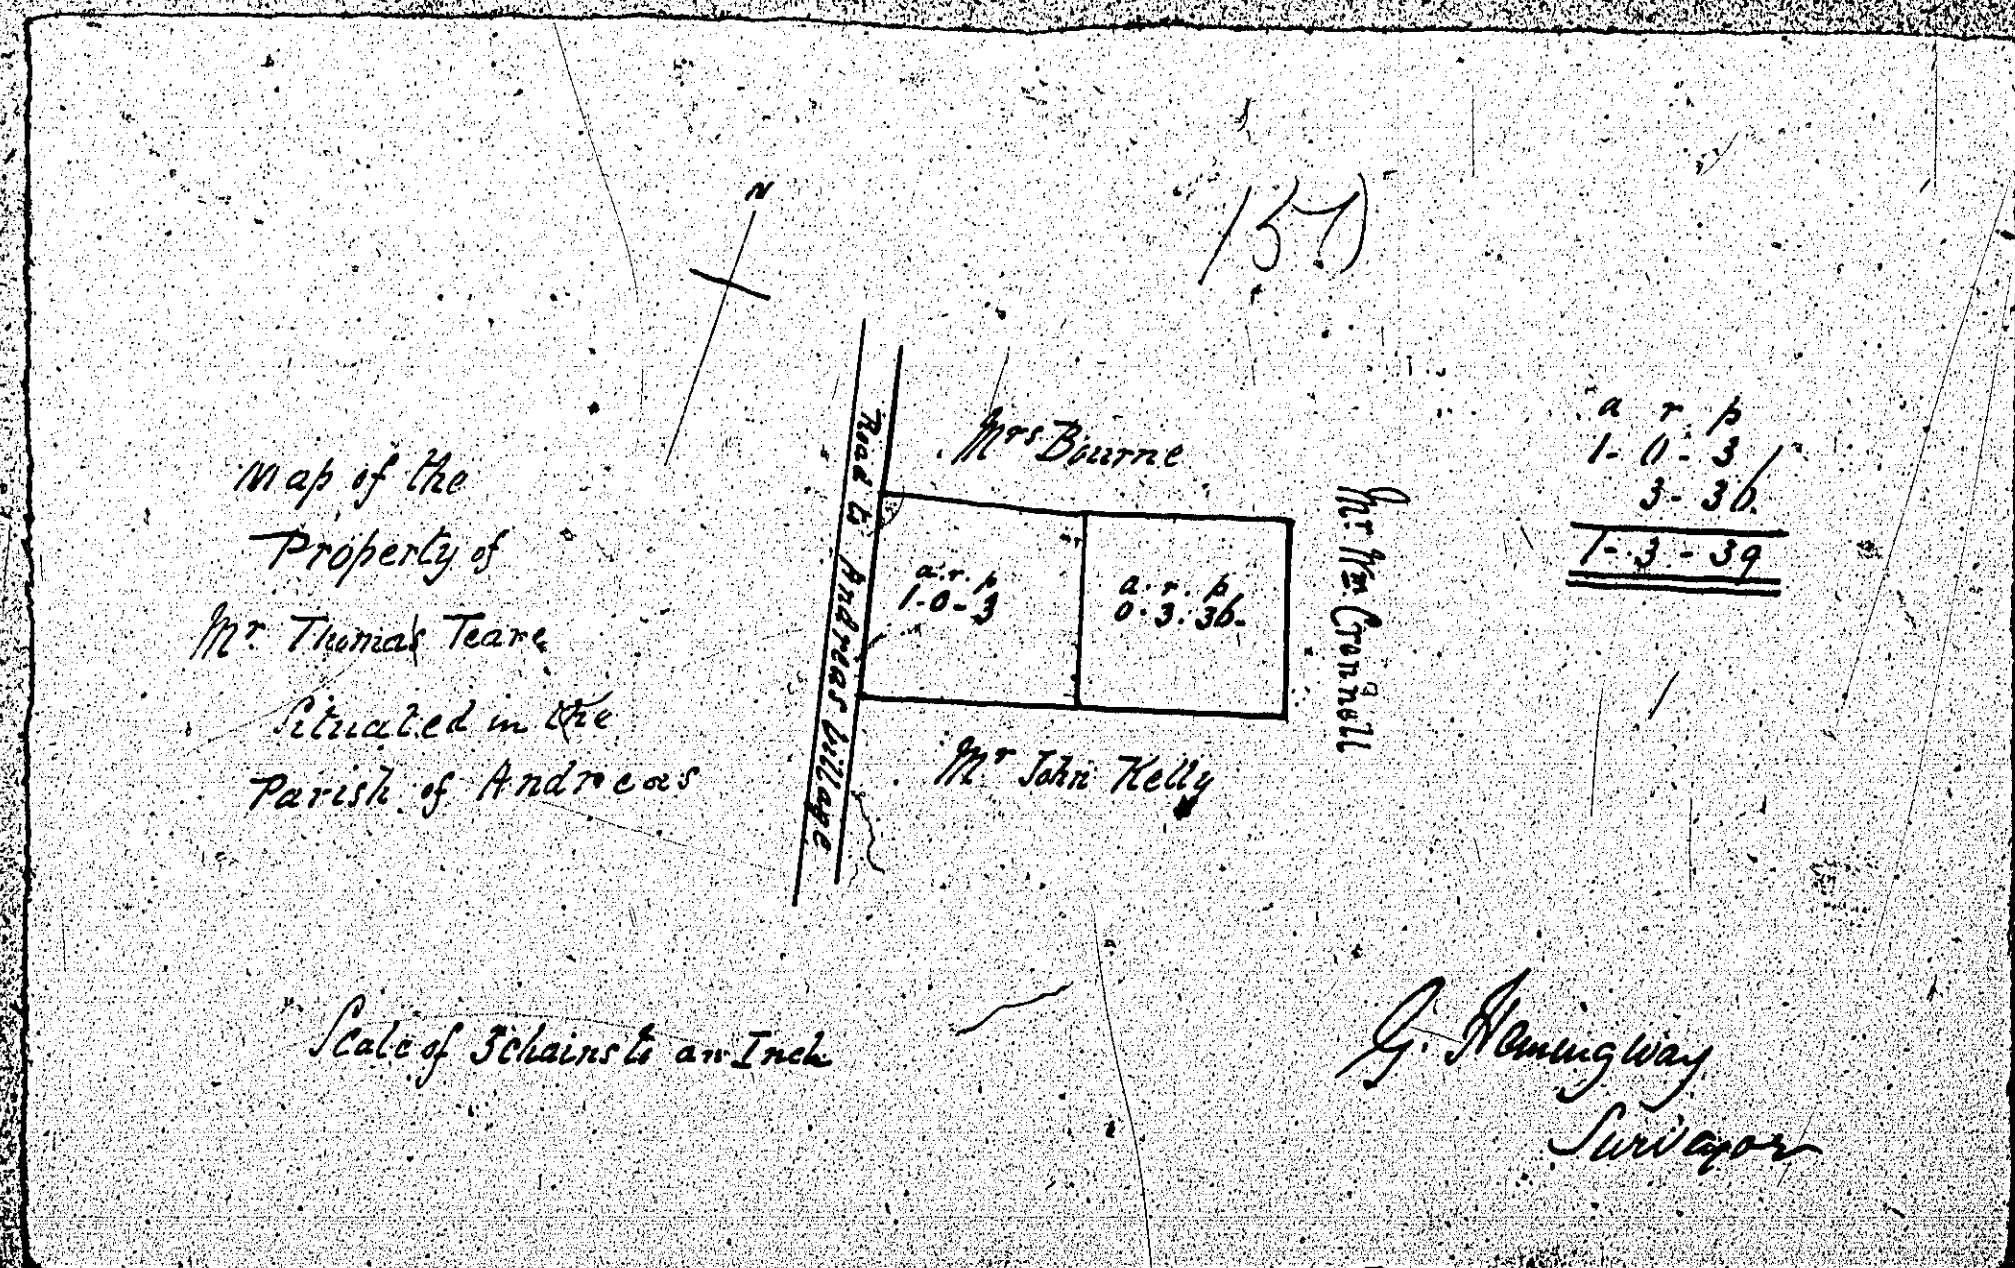 N
157)
Map of the
Property of
Mr. Thomas Teare
Situated in the
Parish of Andreas
Road to Andreas Village
Mrs Bourne
a. r. p
1-0-3
a. r. p
0.3.36.
Mr. Wm. Crennell
Mr John Kelly
a r. p
1-0-3
3-36.
1-3-39
Scale of 3 chains to an Inch
G. Hemingway
Surveyor